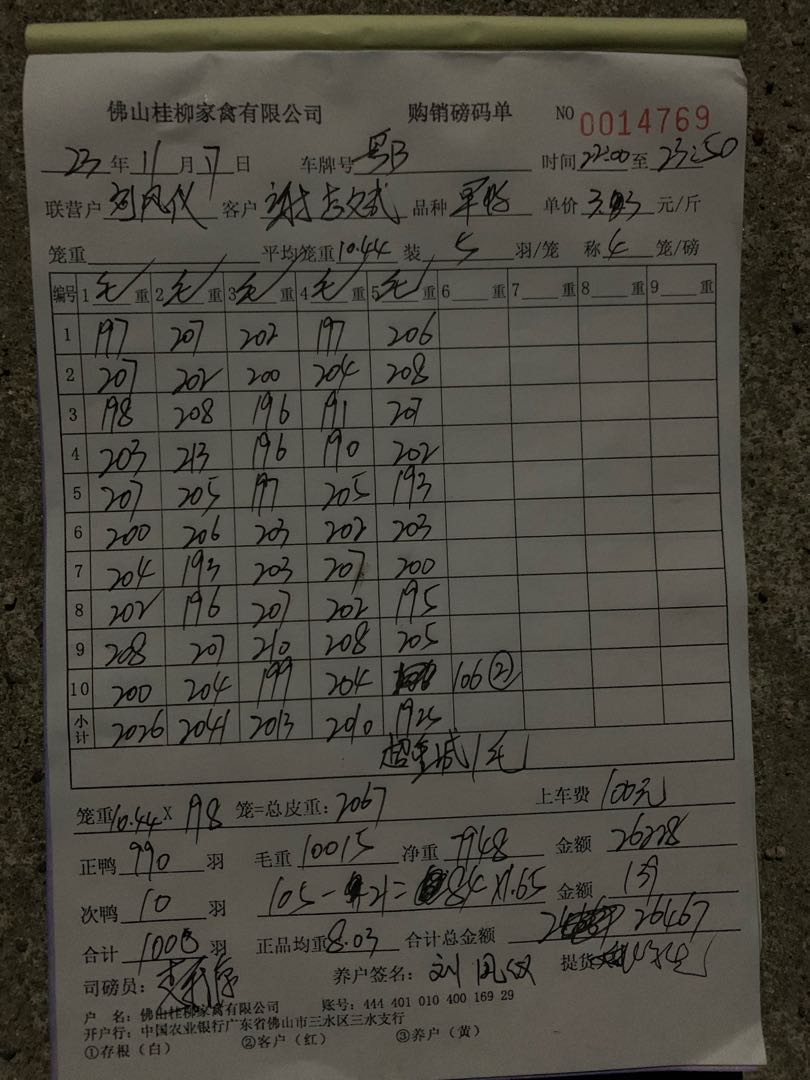 佛山桂柳家禽有限公司 购销磅码单 NO 0014769
23 年 11 月 7 日 车牌号 粤B 时间 22:00 至 23:50
联营户 刘凤仪 客户 谢志文武 品种 单价 元/斤
笼重 平均笼重 10.44 装 5 羽/笼 称 4 笼/磅
编号 1 毛 重 2 毛 重 3 毛 重 4 毛 重 5 毛 重 6 重 7 重 8 重 9 重
1 197 207 202 197 206
2 207 202 200 204 208
3 198 208 196 191 207
4 203 213 196 190 202
5 207 205 197 205 193
6 200 206 203 202 203
7 204 193 203 207 200
8 202 196 207 202 195
9 208 207 210 208 205
10 200 204 199 204 106②
小计 2026 2041 2013 2010 1925
超重减1毛
笼重 10.44 X 198 笼=总皮重: 2067 上车费 100元
正鸭 990 羽 毛重 10015 净重 7948 金额 26228
次鸭 10 羽 105 - 21 = 84 X1.65 金额 139
合计 1000 羽 正品均重 8.03 合计总金额 26467
司磅员: 养户签名: 刘凤仪 提货
户 名: 佛山桂柳家禽有限公司 账号: 444 401 010 400 169 29
开户行: 中国农业银行广东省佛山市三水区三水支行
①存根(白) ②客户(红) ③养户(黄)